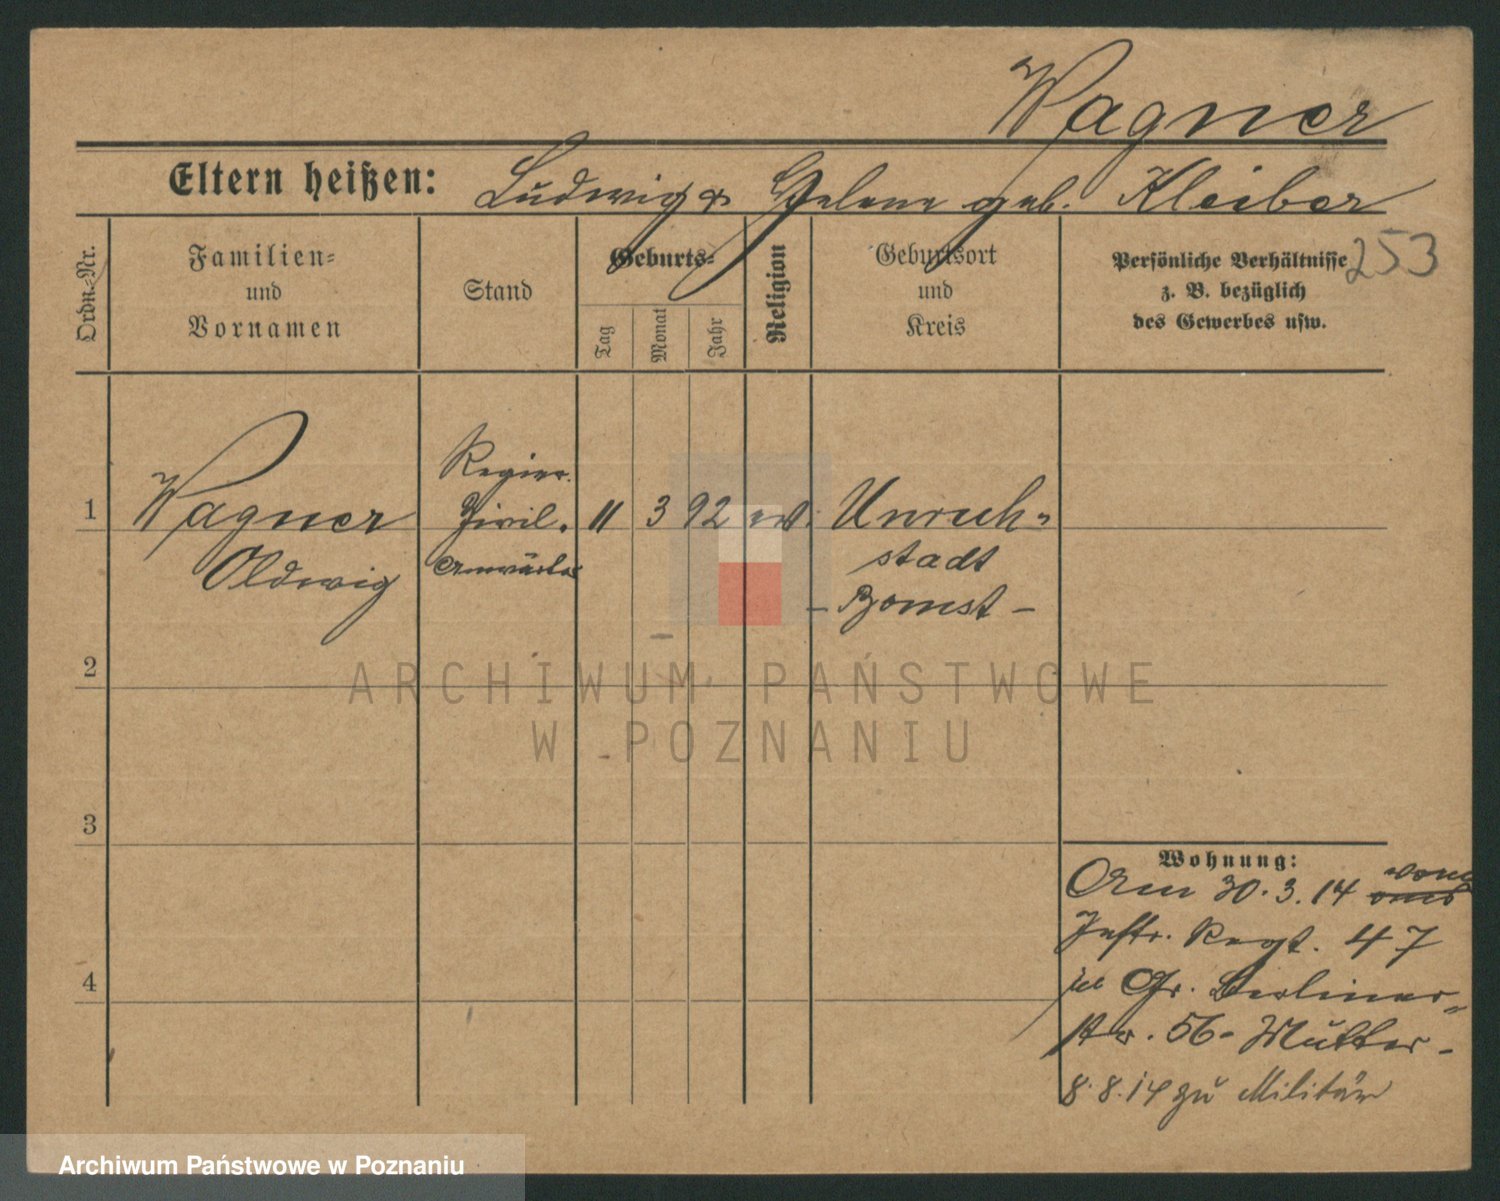 Wagner
Eltern heißen: Ludwig & Helene geb. Kleiber
253
Ordn.-Nr.
Familien-
und
Vornamen
Stand
Geburts-
Tag
Monat
Jahr
Religion
Geburtsort
und
Kreis
Persönliche Verhältnisse
z. B. bezüglich
des Gewerbes usw.
1
Wagner
Oldwig
Regier.
Zivil.
Anwärter
11
3
92
ev.
Unruh-
stadt
- Bomst -
2
3
4
Wohnung:
Am 30.3.14 vom
Inftr. Regt. 47
in Gr. Berliner-
str. 56- Mutter-
8.8.14 zu Militär
ARCHIWUM PAŃSTWOWE
W POZNANIU
Archiwum Państwowe w Poznaniu